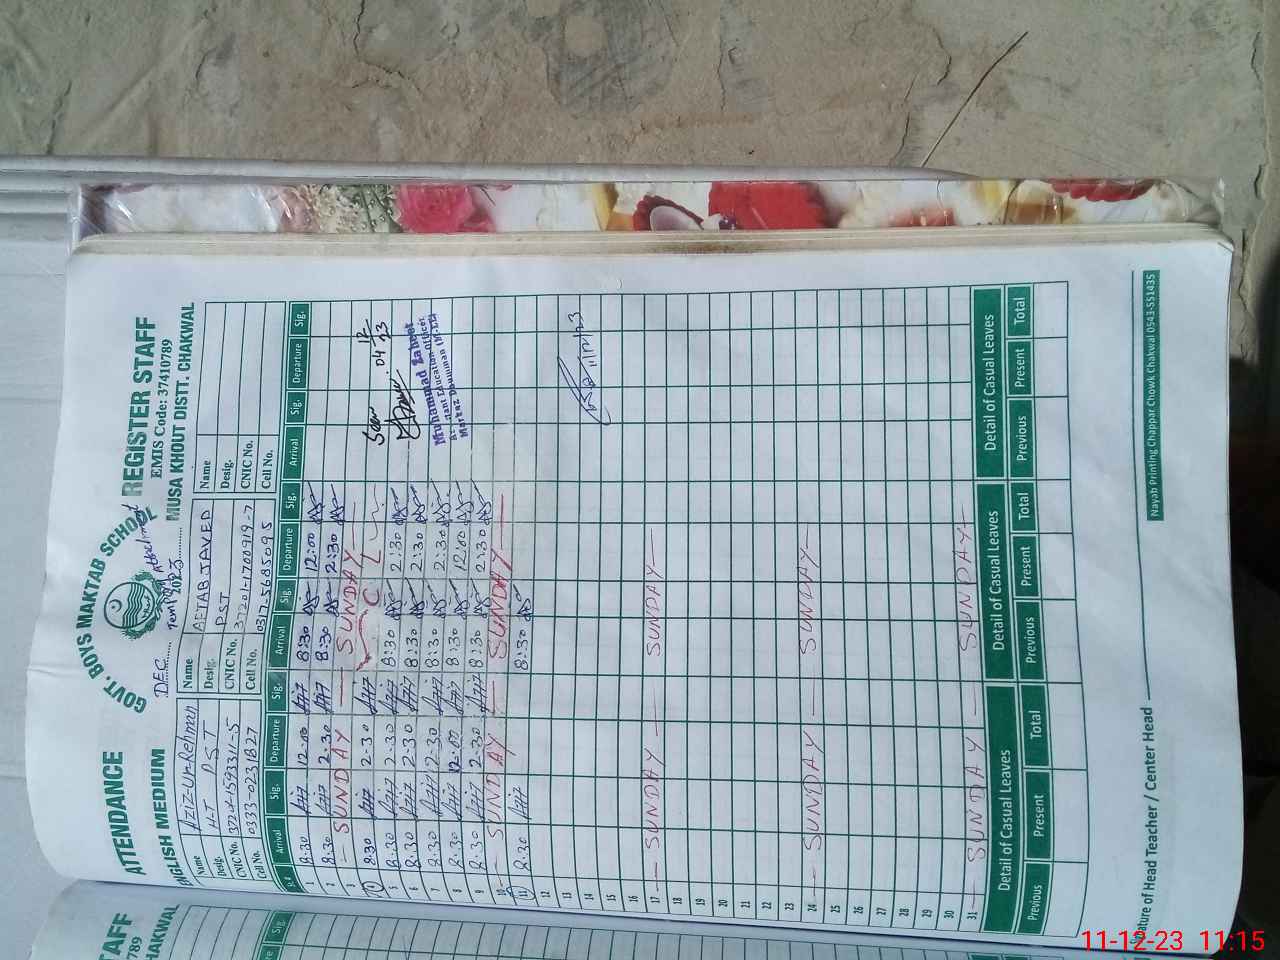 ATTENDANCE GOVT. BOYS MAKTAB SCHOOL REGISTER STAFF
EMIS Code: 37410789
ENGLISH MEDIUM DEC 2023 MUSA KHOUT DISTT. CHAKWAL
Name Aziz-Ur-Rehman Name AFTAB JAVED Name
Desig. H-T PST Desig. PST Desig.
CNIC No. CNIC No. 37201-1700919-7 CNIC No.
Cell No. 0333-0231827 Cell No. 0317-5685095 Cell No.
Arrival Sig. Departure Sig. Arrival Sig. Departure Sig. Arrival Sig. Departure Sig.
1 8:30 12:00 8:30 12:00
2 8:30 2:30 8:30 2:30
3 SUNDAY SUNDAY
4 8:30 2:30 C L Seen 04/12/23
5 8:30 2:30 8:30 2:30
6 8:30 2:30 8:30 2:30
Muhammad Zaheer
Assistant Education Officer
Markaz Dhumman (M-EE)
7 8:30 2:30 8:30 2:30
8 8:30 12:00 8:30 12:00
9 8:30 2:30 8:30 2:30
10 SUNDAY SUNDAY
11 8:30 8:30
12
13
14 11/12/23
15
16
17 SUNDAY SUNDAY
18
19
20
21
22
23
24 SUNDAY SUNDAY
25
26
27
28
29
30
31 SUNDAY SUNDAY
Detail of Casual Leaves Detail of Casual Leaves Detail of Casual Leaves
Previous Present Total Previous Present Total Previous Present Total
Signature of Head Teacher / Center Head
Nayab Printing Chappar Chowk Chakwal 0543-551435
STAFF
789
HAKWAL
Departure Sig.
11-12-23 11:15